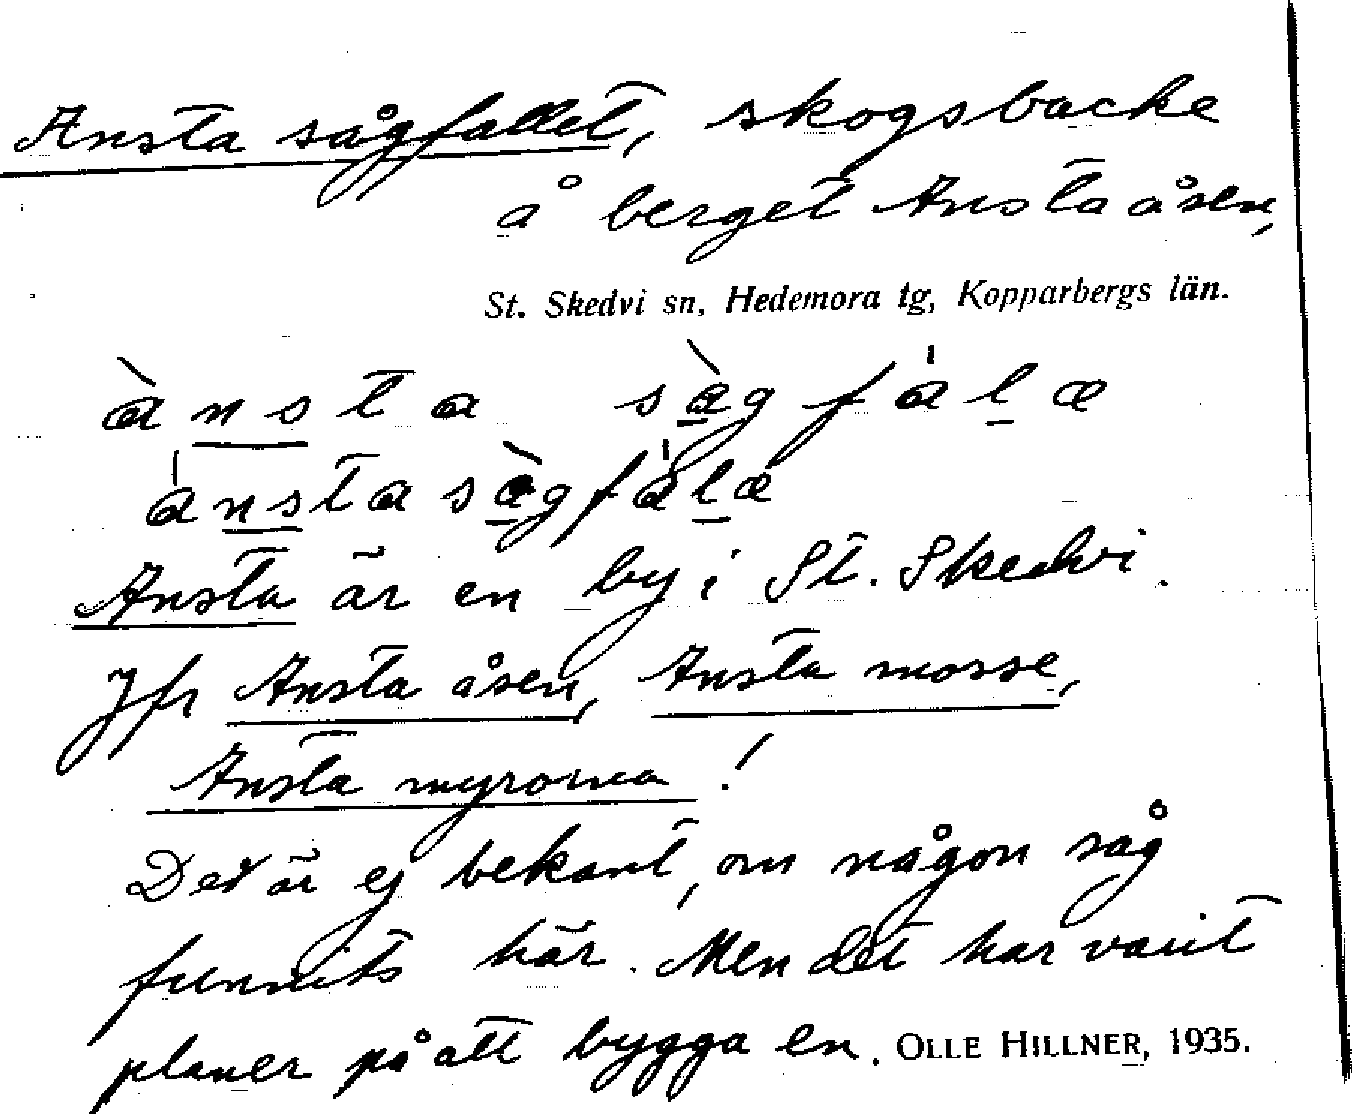 Ansta sågfallet, skogsbacke
å berget Ansta åsen,
St. Skedvi sn, Hedemora tg, Kopparbergs län.
ànsta sàgfálæ
ánstasàgfálæ
Ansta är en by i St. Skedvi.
Jfr Ansta åsen, Ansta mosse,
Ansta myrorna!
Det är ej bekant, om någon såg
funnits här. Men det har varit
planer på att bygga en. OLLE HILLNER, 1935.